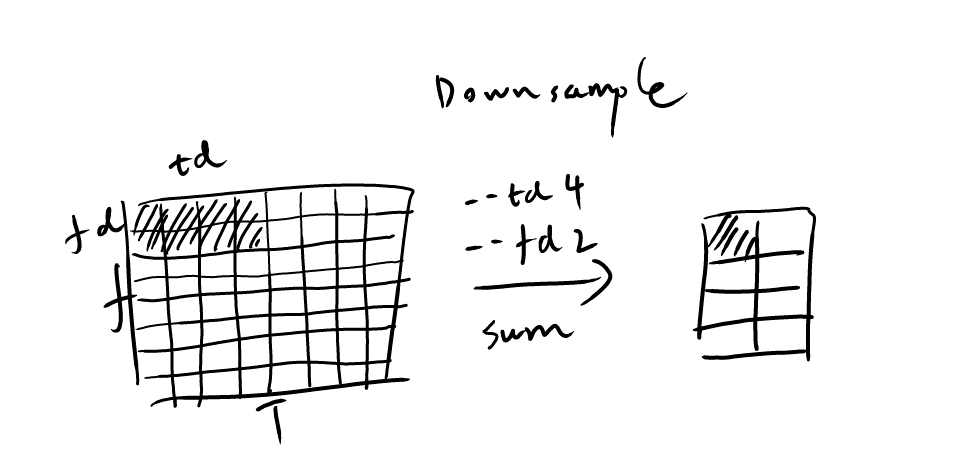 Downsample
td
fd
f
T
--td 4
--fd 2
sum